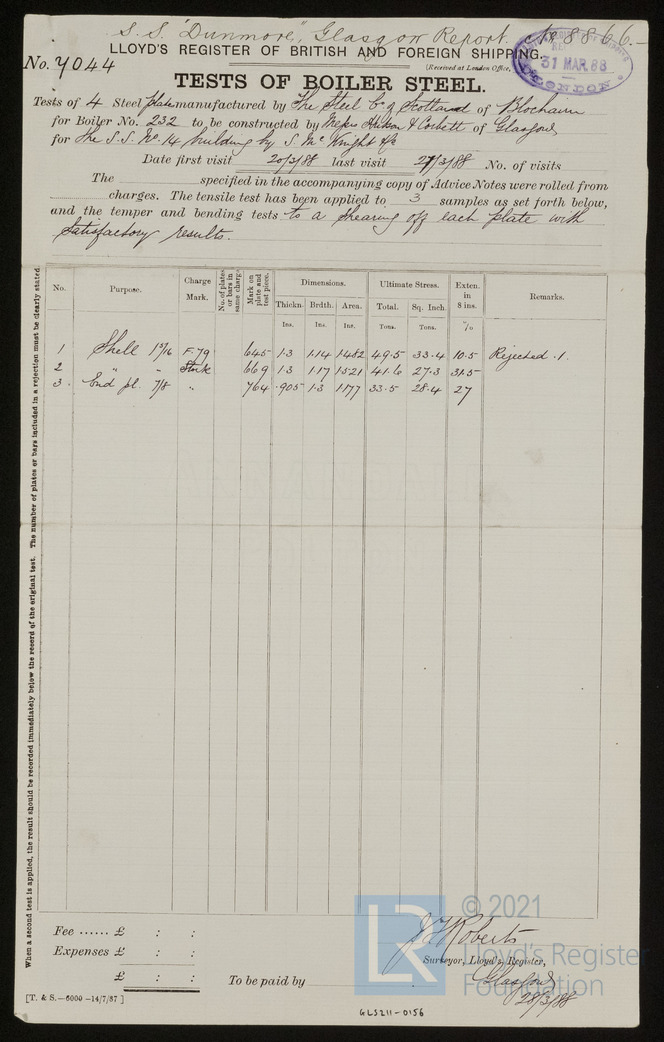 S.S. "Dunmore", Glasgow Report No 8866.
LLOYD'S REGISTER OF BRITISH AND FOREIGN SHIPPING.
No. 4044
(Received at London Office,
31 MAR. 88
LONDON
TESTS OF BOILER STEEL.
Tests of 4 Steel plates manufactured by The Steel Co of Scotland of Blochairn
for Boiler No. 232 to be constructed by Messrs & Corbett of Glasgow
for the S.S. No. 14 building by S. McKnight &Co
Date first visit 20/3/88 last visit 27/3/88 No. of visits
The specified in the accompanying copy of Advice Notes were rolled from
charges. The tensile test has been applied to 3 samples as set forth below,
and the temper and bending tests to a shearing off each plate with
satisfactory results.
When a second test is applied, the result should be recorded immediately below the record of the original test. The number of plates or bars included in a rejection must be clearly stated.
No. Purpose. Charge Mark. No. of plates or bars in same charge Mark on plate and test piece. Dimensions. Ultimate Stress. Exten. in 8 ins. Remarks.
Thickn. Brdth. Area. Total. Sq. Inch.
Ins. Ins. Ins. Tons. Tons. %
1 Shell 1 5/16 F.79 645 1.3 1.14 1.482 49.5 33.4 10.5 Rejected .1.
2 " " 669 1.3 1.17 1.521 41.6 27.3 31.5
3 . End pl. 7/8 " 764 .905 1.3 1.177 33.5 28.4 27
Fee ...... £ : :
Expenses £ : :
£ : :
To be paid by
J Roberts
Surveyor, Lloyd's Register,
Glasgow
28/3/88
[T. & S.—6000 —14/7/87]
GLS211-0156
LR
© 2021
Lloyd's Register
Foundation